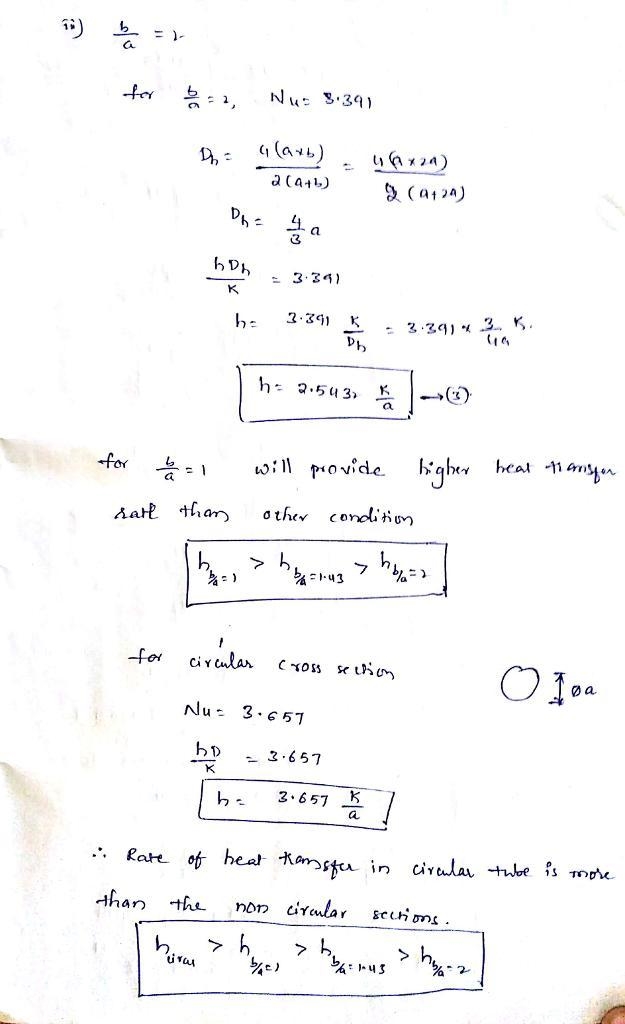 ii) b/a = 2
for b/a = 2, Nu = 3.391
Dh = 4(a×b)/2(a+b) = 4(a×2a)/2(a+2a)
Dh = 4/3 a
hDh/K = 3.391
h = 3.391 K/Dh = 3.391 × 3/4a K.
h = 2.5432 K/a → (3)
for b/a = 1 will provide higher heat transfer
rate than other condition
h b/a=1 > h b/a=1.43 > h b/a=2
for circular cross section
Øa
Nu = 3.657
hD/K = 3.657
h = 3.657 K/a
∴ Rate of heat transfer in circular tube is more
than the non circular sections.
h circ > h b/a=1 > h b/a=1.43 > h b/a=2